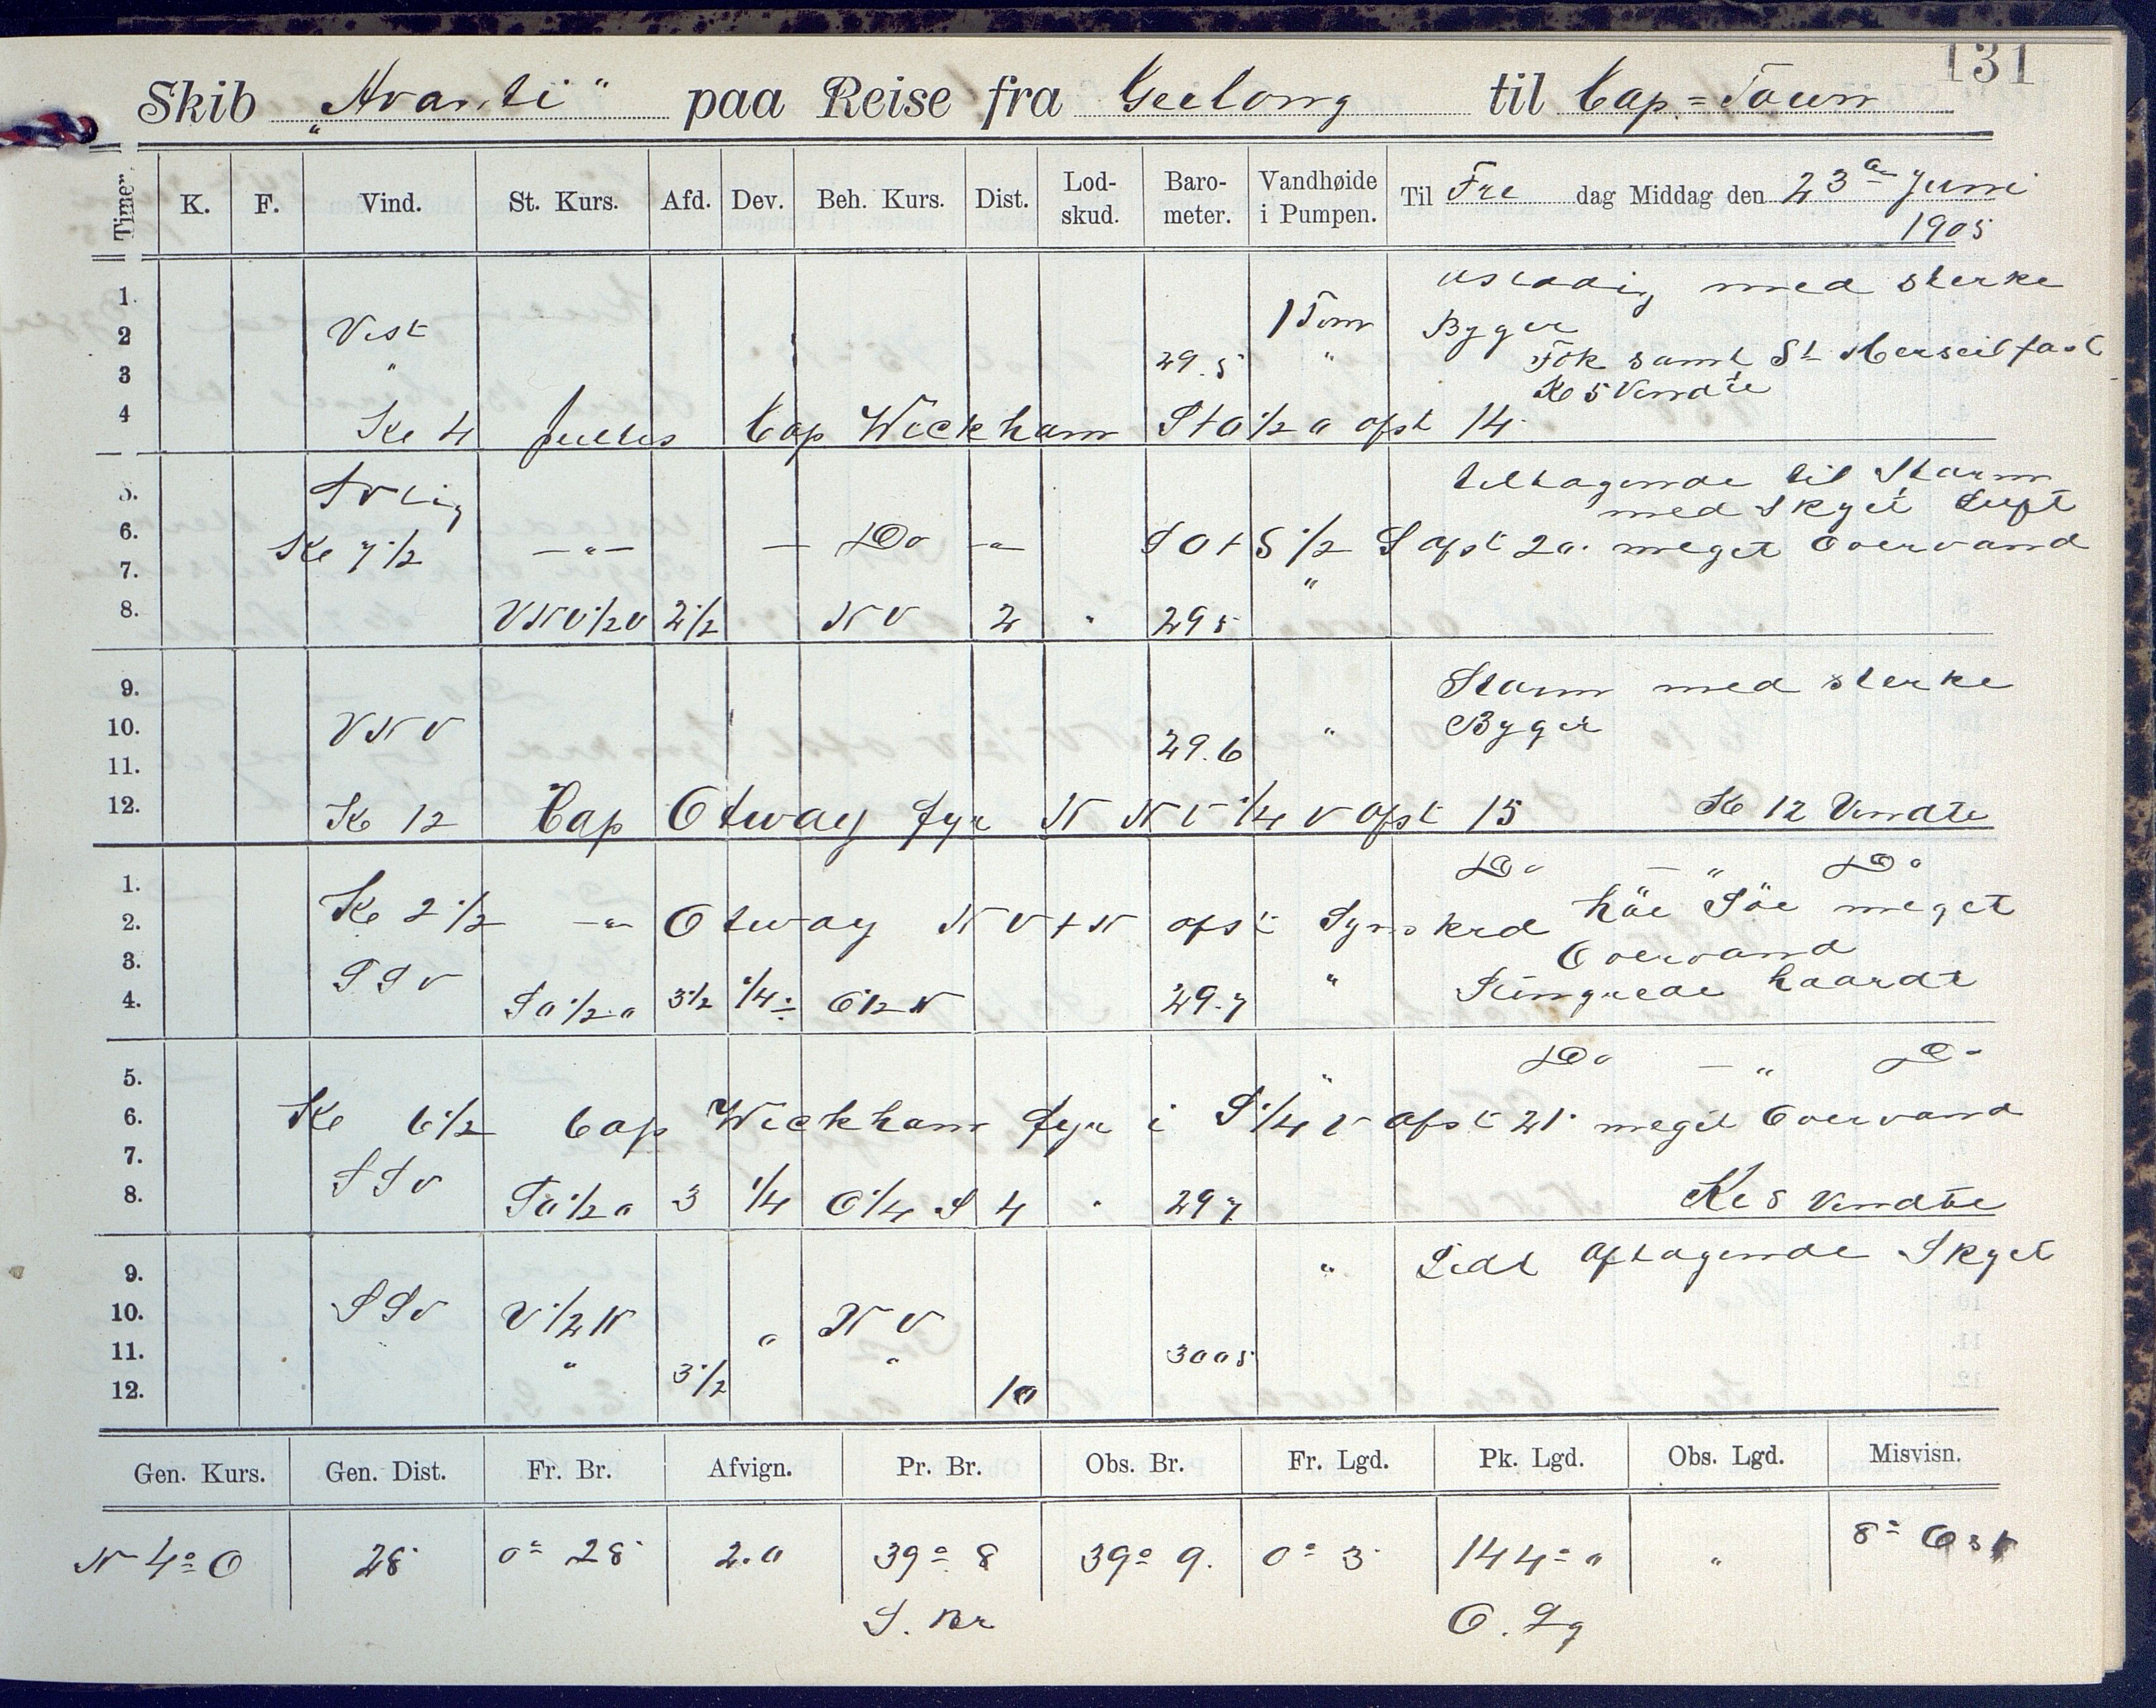 131
Skib „Avanti“ paa Reise fra Geelong til Cap=Town
Timer. K. F. Vind. St. Kurs. Afd. Dev. Beh. Kurs. Dist. Lod-skud. Baro-meter. Vandhøide i Pumpen. Til Fre dag Middag den 23de Juni
1905
1. ustadig med sterke
2 Vest 1 Tom Byger
3 " 29.5 " Fok samt St Merseil fast
Kl 5 Vendte
4 Kl 4 Cap Wickham afst 14
5. tiltagende til Storm
med Skyet Luft
6. Kl 7 1/2 —"— — Do —"— SO t S 1/2 S afst 20. meget Overvand
7. "
8. VNV 1/2 V 2 1/2 NV 2 " 29 5
9. Storm med sterke
10. VNV " Byger
11. 29.6
12. Kl 12 Cap Otway fyr NNV 1/4 V afst 15 Kl 12 Vendte
1. Do — " Do
2. Kl 2 1/2 —"— Otway NV t N afst Synskrd höi Söe meget
Overvand
3. SSV "
4. SO 1/2 O 3 1/2 1/4 O 1/2 N 29.7 haardt
5. " Do — " Do
6. Kl 6 1/2 Cap Wickham fyr i S 1/4 V afst 21. meget Overvand
7. SSV
8. SO 1/2 O 3 1/4 O 1/4 S 4 " 29 7 Kl 8 Vendte
9. " Lidt aftagende Skyet
10. SSV V 1/2 N " NV
11. " " 3005
12. 3 1/2 10
Gen. Kurs. Gen. Dist. Fr. Br. Afvign. Pr. Br. Obs. Br. Fr. Lgd. Pk. Lgd. Obs. Lgd. Misvisn.
N 4° O 28 0° 28 2.0 39° 8 39° 9. 0° 3 144° 0 " 8° Ost
S. Br O. Lg